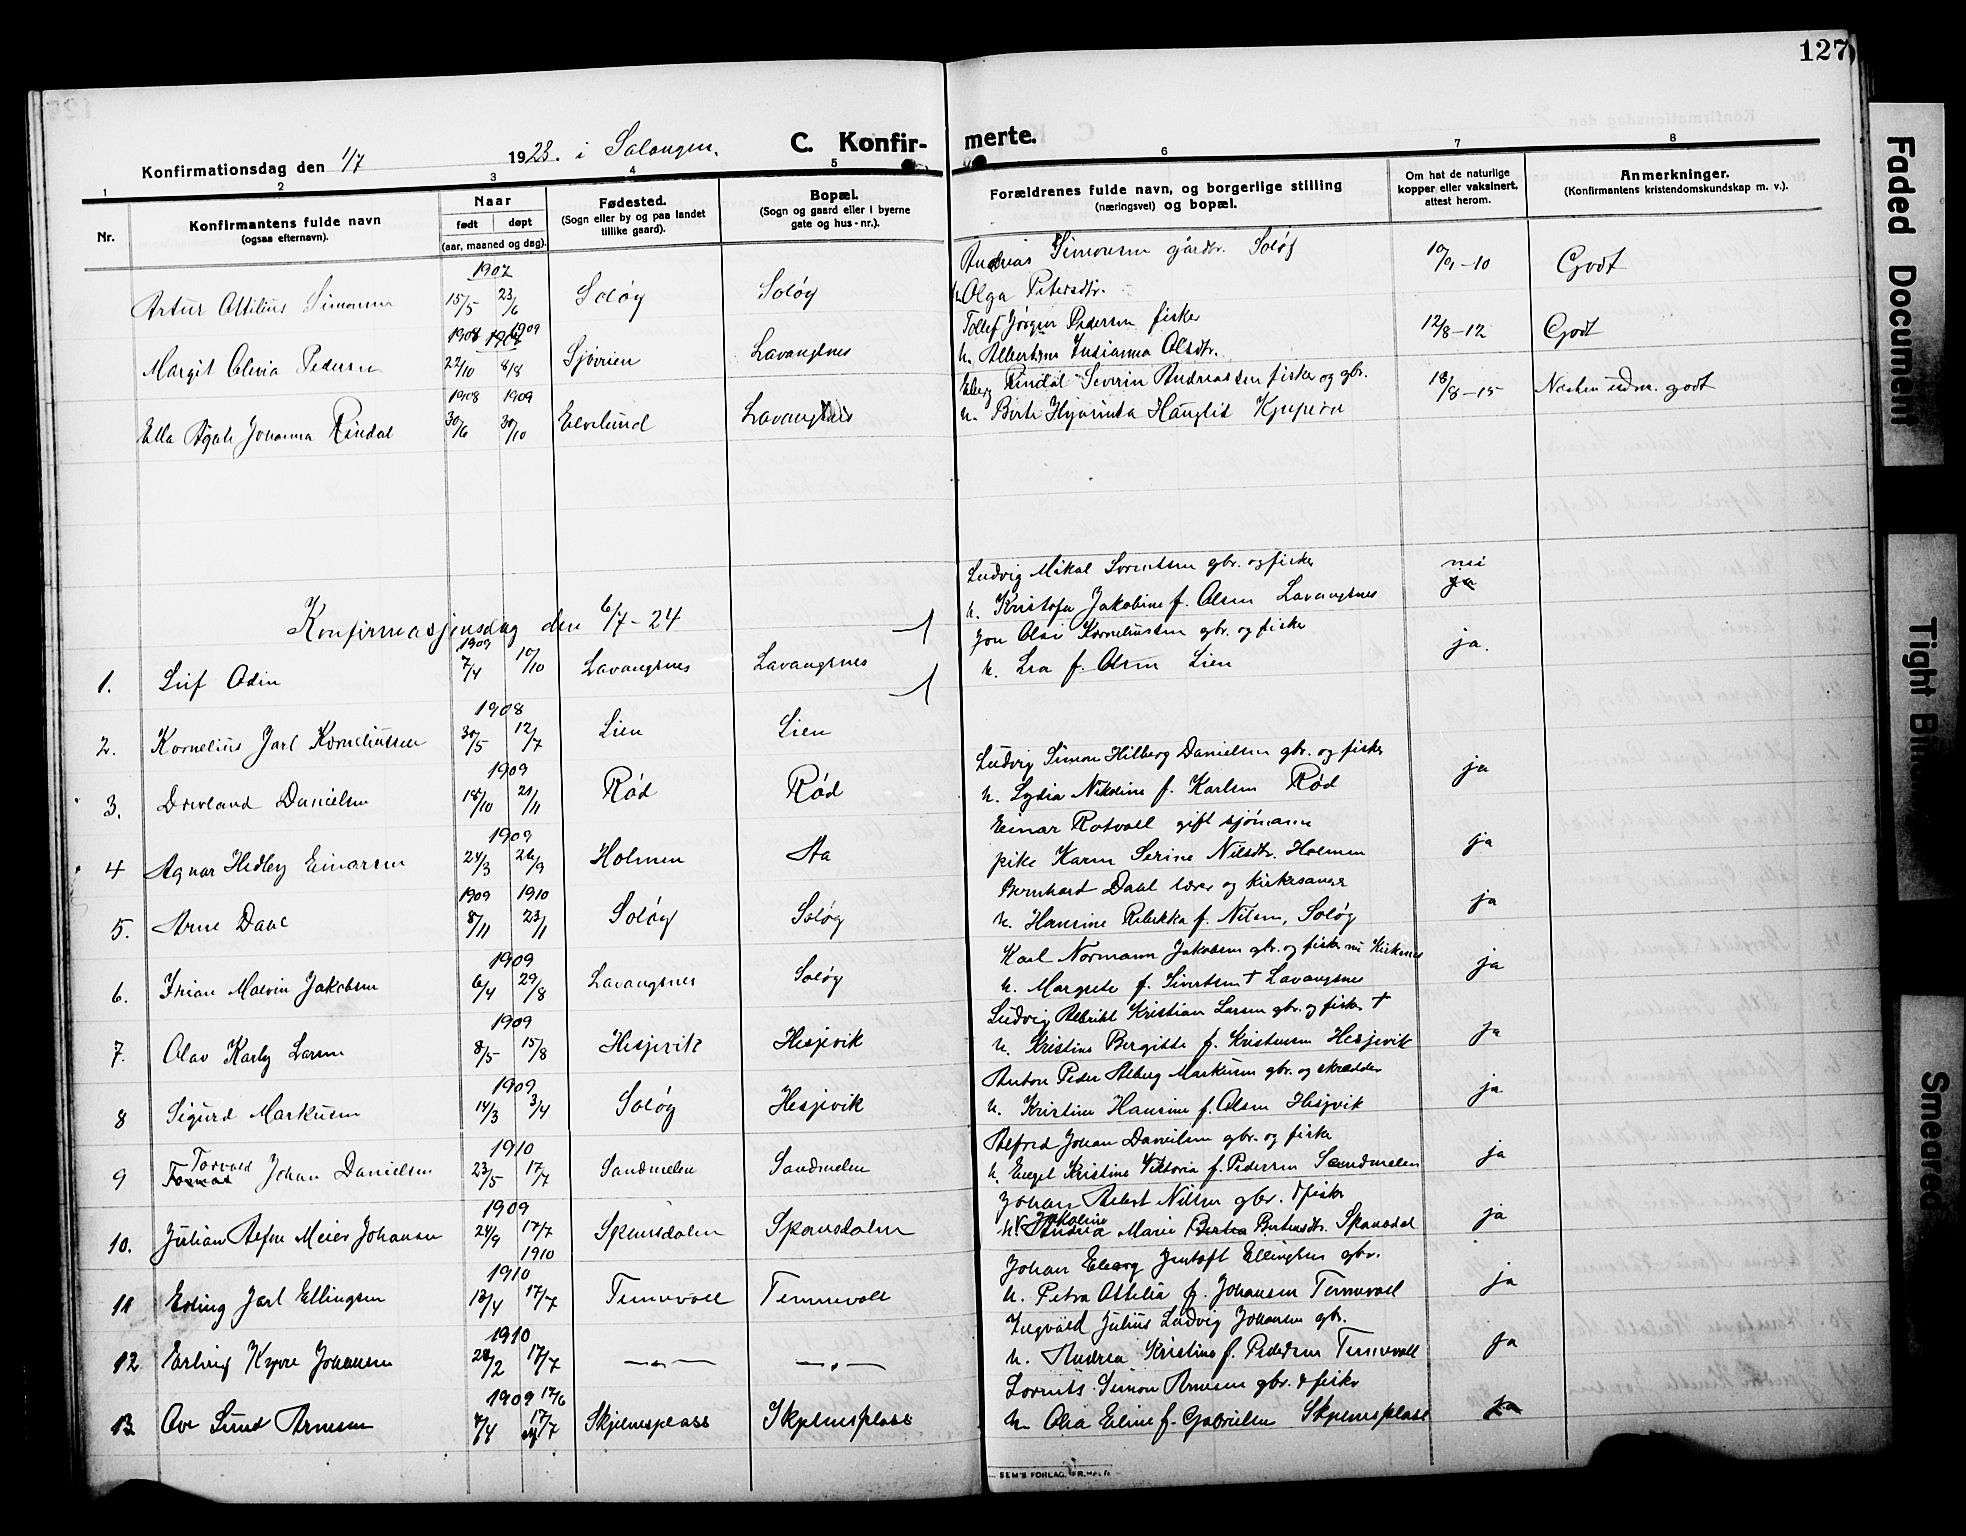 127
C. Konfirmerte.
Konfirmationsdag den 1/7 1923. i Salangen.
1 2 3 4 5 6 7 8
Nr.
Konfirmantens fulde navn
(ogsaa efternavn).
Naar
født døpt
(aar, maaned og dag).
Fødested.
(Sogn eller by og paa landet
tillike gaard).
Bopæl.
(Sogn og gaard eller i byerne
gate og hus-nr.).
Forældrenes fulde navn, og borgerlige stilling
(næringsvei) og bopæl.
Om hat de naturlige
kopper eller vaksinert,
attest herom.
Anmerkninger.
(Konfirmantens kristendomskundskap m. v.).
1907
Artur Ottilius Simonsen 15/5 23/6 Soløy Soløy
Andreas Simonsen gårdbr. Soløy 10/9-10 Godt
h. Olga Petersdtr.
1908 1909
Margit Olivia Pedersen 22/10 8/8 Sjøveien Lavangsnes
Tollef Jørgen Pedersen fisker 12/8-12 Godt
h. Albertine Indianna Olsdtr.
1908 1909
Ella Agate Johanna Rindal 30/6 30/10 Elvelund Lavangsnes
Elberg Rindal Severin Andreassen fisker og gbr. 18/8-15 Næsten udm. godt
h. Berte Hjarinta Hauglid
Konfirmasjonsdag den 6/7-24
1909
1. Leif Odin 7/4 10/10 Lavangsnes Lavangsnes
Ludvig Mikal Sorentsen gbr. og fisker nei
h. Kristofa Jakobine f. Olsen Lavangsnes ja
1908
2. Kornelius Jarl Korneliussen 30/5 12/7 Lien Lien
Jon Olai Korneliussen gbr. og fisker ja.
h. Lea f. Olsen Lien
1909
3. Drevland Danielsen 18/10 21/11 Rød Rød
Ludvig Simon Hilberg Danielsen gbr. og fisker ja
h. Lydia Nikoline f. Karlsen Rød
1909
4 Agnar Hedley Einarsen 24/3 26/9 Holmen Aa
Einar Rotvoll gift sjömann ja
pike Karen Serine Nilsdtr. Holmen
1909 1910
5. Arne Dahl 8/11 23/1 Soløy Soløy
Bernhard Dahl lærer og kirkesanger ja
h. Hansine Rebekka f. Nilsen, Soløy
1909
6. Malvin Jakobsen 6/4 29/8 Lavangsnes Soløy
Karl Normann Jakobsen gbr. og fisker nu Kirkenes ja
h. Margrete f. Sivertsen † Lavangsnes
1909
7. Olav Karly Larsen 8/5 15/8 Hesjevik Hesjevik
Ludvig Albrikt Kristian Larsen gbr. og fisker † ja
h. Kristine Bergitte f. Kristensen Hesjevik
1909
8 Sigurd Markusen 14/3 3/4 Soløy Hesjevik
Anton Peder Alberg Markusen gbr. og skrædder ja
h. Kristine Hansine f. Olsen Hesjevik
1910
9 Torvald Johan Danielsen 23/5 17/7 Sandmelen Sandmelen
Alfred Johan Danielsen gbr. og fisker ja
h. Engel Kristine Viktoria f. Pedersen Sandmelen
1909
10. Julian Alfon Meier Johansen 24/9 17/7 1910 Spansdalen Spansdalen
Johan Albert Nilsen gbr. & fisker ja
h. Jakobine Andrea Marie Bertea Bertensdtr. Spansdal
1910
11 Erling Jarl Ellingsen 13/4 17/7 Tennevoll Tennevoll
Johan Elberg Jentoft Ellingsen gbr. ja
h. Petra Ottilia f. Johansen Tennevoll
1910
12 Erling Kyrre Johansen 28/2 17/7 —„— —„—
Ingvald Julius Ludvig Johansen gbr. ja
h. Andrea Kristine f. Pedersen Tennevoll
1909 17/6
13. Ove Sund Arnesen 7/4 17/7 Skjelnesplass Skjelnesplass
Lornits Simon Arnesen gbr. & fisker
h. Olia Eline f. Gabrielsen Skjelnesplass ja
SEM'S FORLAG, FR.HALD
Faded Document
Tight Bind
Smeared